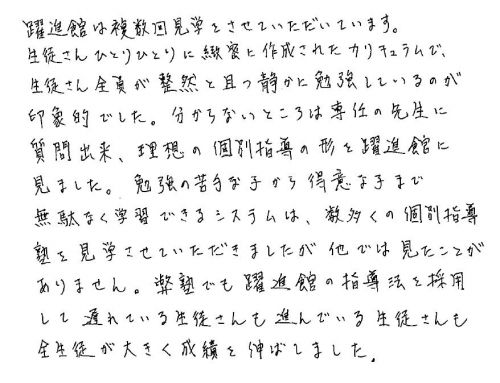 躍進館は複数回見学をさせていただいています。
生徒さんひとりひとりに緻密に作成されたカリキュラムで、
生徒さん全員が整然と且つ静かに勉強しているのが
印象的でした。分からないところは専任の先生に
質問出来、理想の個別指導の形を躍進館に
見ました。勉強の苦手な子から得意な子まで
無駄なく学習できるシステムは、数多くの個別指導
塾を見学させていただきましたが他では見たことが
ありません。弊塾でも躍進館の指導法を採用
して遅れている生徒さんも進んでいる生徒さんも
全生徒が大きく成績を伸ばしました。